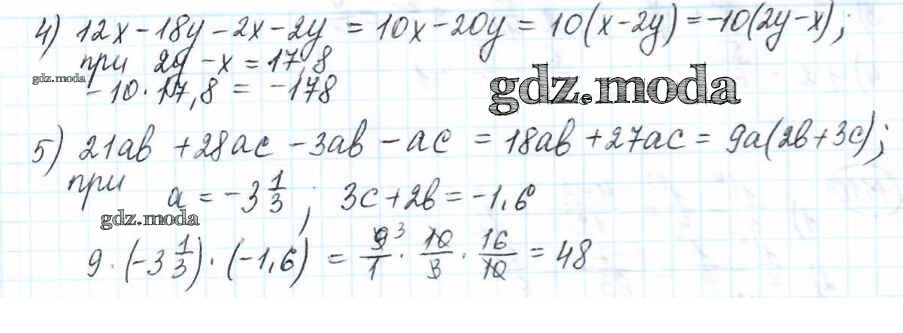 4) 12x - 18y - 2x - 2y = 10x - 20y = 10(x - 2y) = -10(2y - x);
при 2y - x = 17,8
gdz.moda
-10 · 17,8 = -178
gdz.moda
5) 21ab + 28ac - 3ab - ac = 18ab + 27ac = 9a(2b + 3c);
при a = -3 1/3 ; 3c + 2b = -1,6
gdz.moda
9 · (-3 1/3) · (-1,6) = 9³/1 · 10/3 · 16/10 = 48